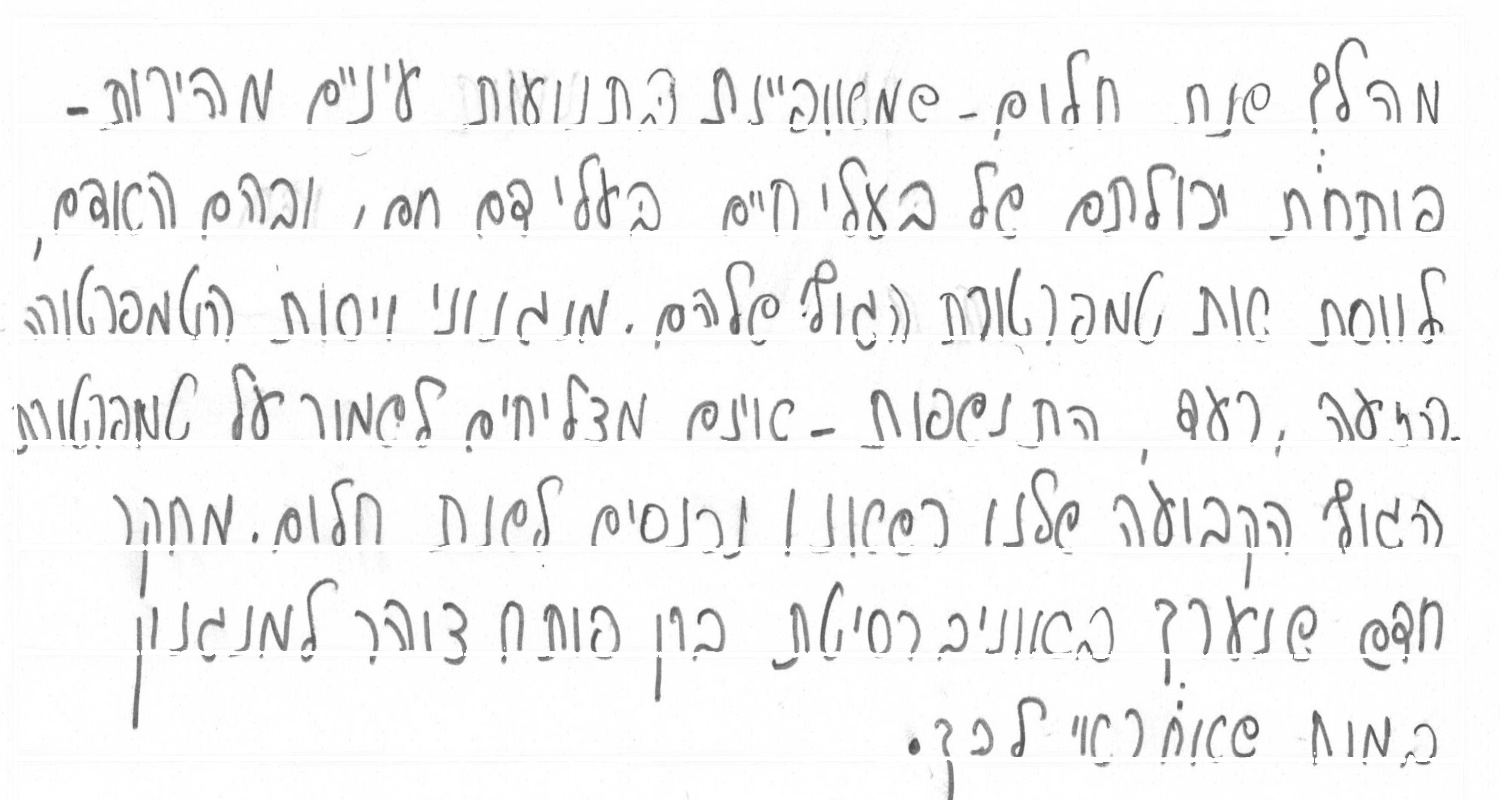 מהלך שנת חלום - שמאופיינת בתנועות עיניים מהירות -
פוחתת יכולתם של בעלי חיים בעלי דם חם, ובהם האדם,
לווסת את טמפרטורת הגוף שלהם. מנגנוני ויסות הטמפרטורה
הזעה, רעד, התנשפות - אינם מצליחים לשמור על טמפרטורת
הגוף הקבועה שלנו כשאנו נכנסים לשנת חלום. מחקר
חדש שנערך באוניברסיטת ברן פותח צוהר למנגנון
במוח שאחראי לכך.